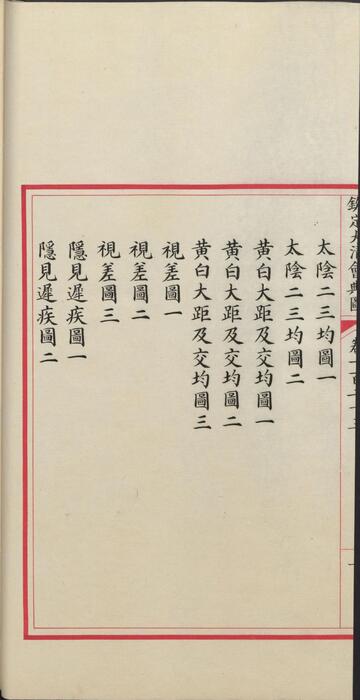 欽定大清會典圖
太陰二三均圖一
太陰二三均圖二
黃白大距及交均圖一
黃白大距及交均圖二
黃白大距及交均圖三
視差圖一
視差圖二
視差圖三
隱見遲疾圖一
隱見遲疾圖二